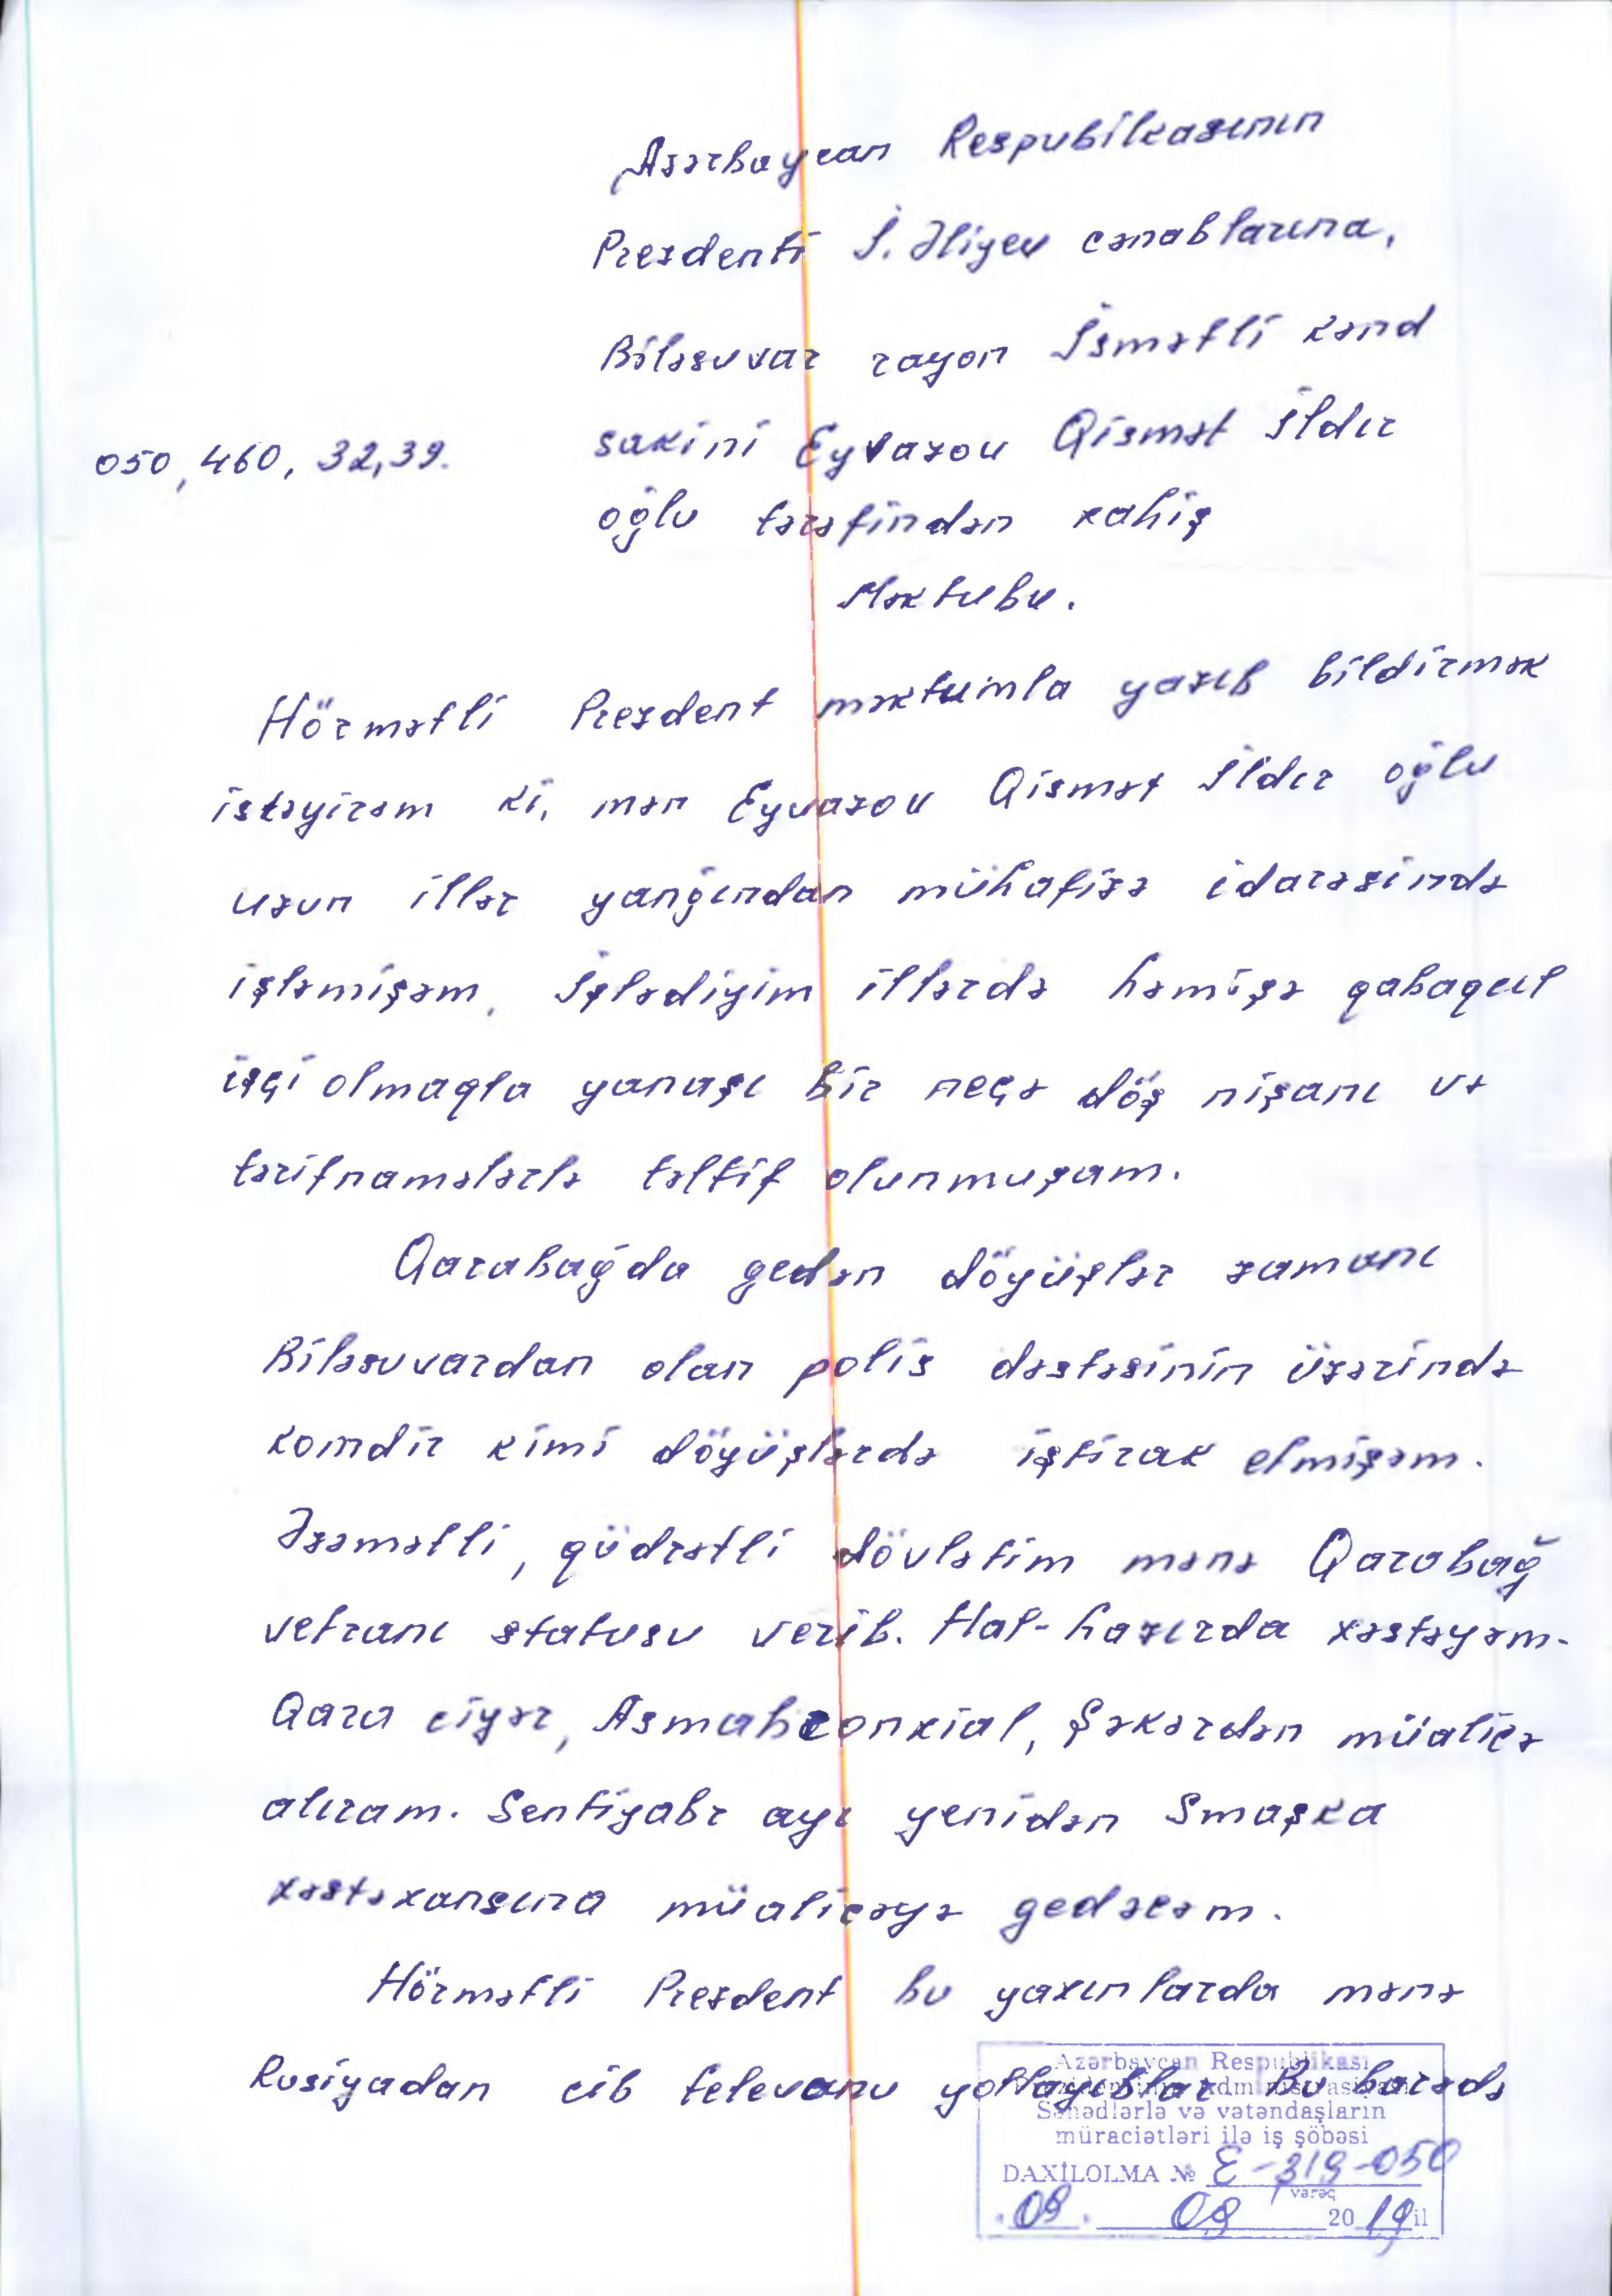 Azərbaycan Respubilkasının
Prezdenti İ. Əliyev cənablarına,
Biləsuvar rayon İsmətli kənd
sakini Eyvazov Qismət İldır
050, 460, 32, 39.
oğlu tərəfindən xahiş
Məktubu.
Hörmətli Prezdent məktumla yazıb bildirmək
istəyirəm ki, mən Eyvazov Qismət İldır oğlu
uzun illər yanğından mühafizə idarəsində
işləmişəm, İşlədiyim illərdə həmişə qabaqcıl
işçi olmaqla yanaşı bir neçə döş nişanı və
tərifnamələrlə təltif olunmuşam.
Qarabağda gedən döyüşlər zamanı
Biləsuvardan olan polis dəstəsinin üzərində
komdir kimi döyüşlərdə iştirak etmişəm.
Əzəmətli, qüdrətli dövlətim mənə Qarabağ
vetranı statusu verib. Hal-hazırda xəstəyəm.
Qara ciyər, Asmabronxial, Şəkərdən müalicə
alıram. Sentiyabr ayı yenidən Smaşka
xəstəxansına müalicəyə gedəcəm.
Hörmətli Prezdent bu yaxınlarda mənə
Rusiyadan cib televanu yollayıblar Bu barədə
Azərbaycan Respublikası
Prezidentinin Administrasiyası
Sənədlərlə və vətəndaşların
müraciətləri ilə iş şöbəsi
DAXİLOLMA № E-319-050
vərəq
09. 09 2019 il